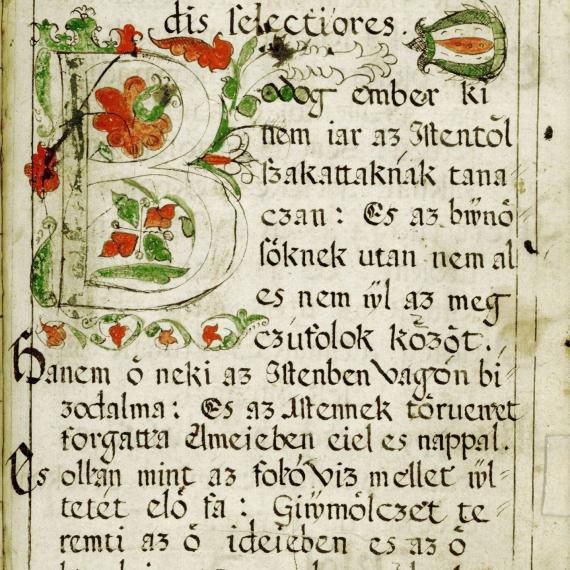 dis selectiores.
Bodog ember ki
nem iar az Istentöl
szakattaknak tana⸗
czan : Es az bwnö⸗
söknek utan nem al
es nem wl az meg
czufolok közöt.
Hanem ö neki az Istenben vagon bi⸗
zodalma : Es az Istennek törueniet
forgatta elmeieben eiel es nappal.
Es ollian mint az folo viz mellet wl⸗
tetet elö fa : Giwmölczet te⸗
remti az ö ideieben es az ö